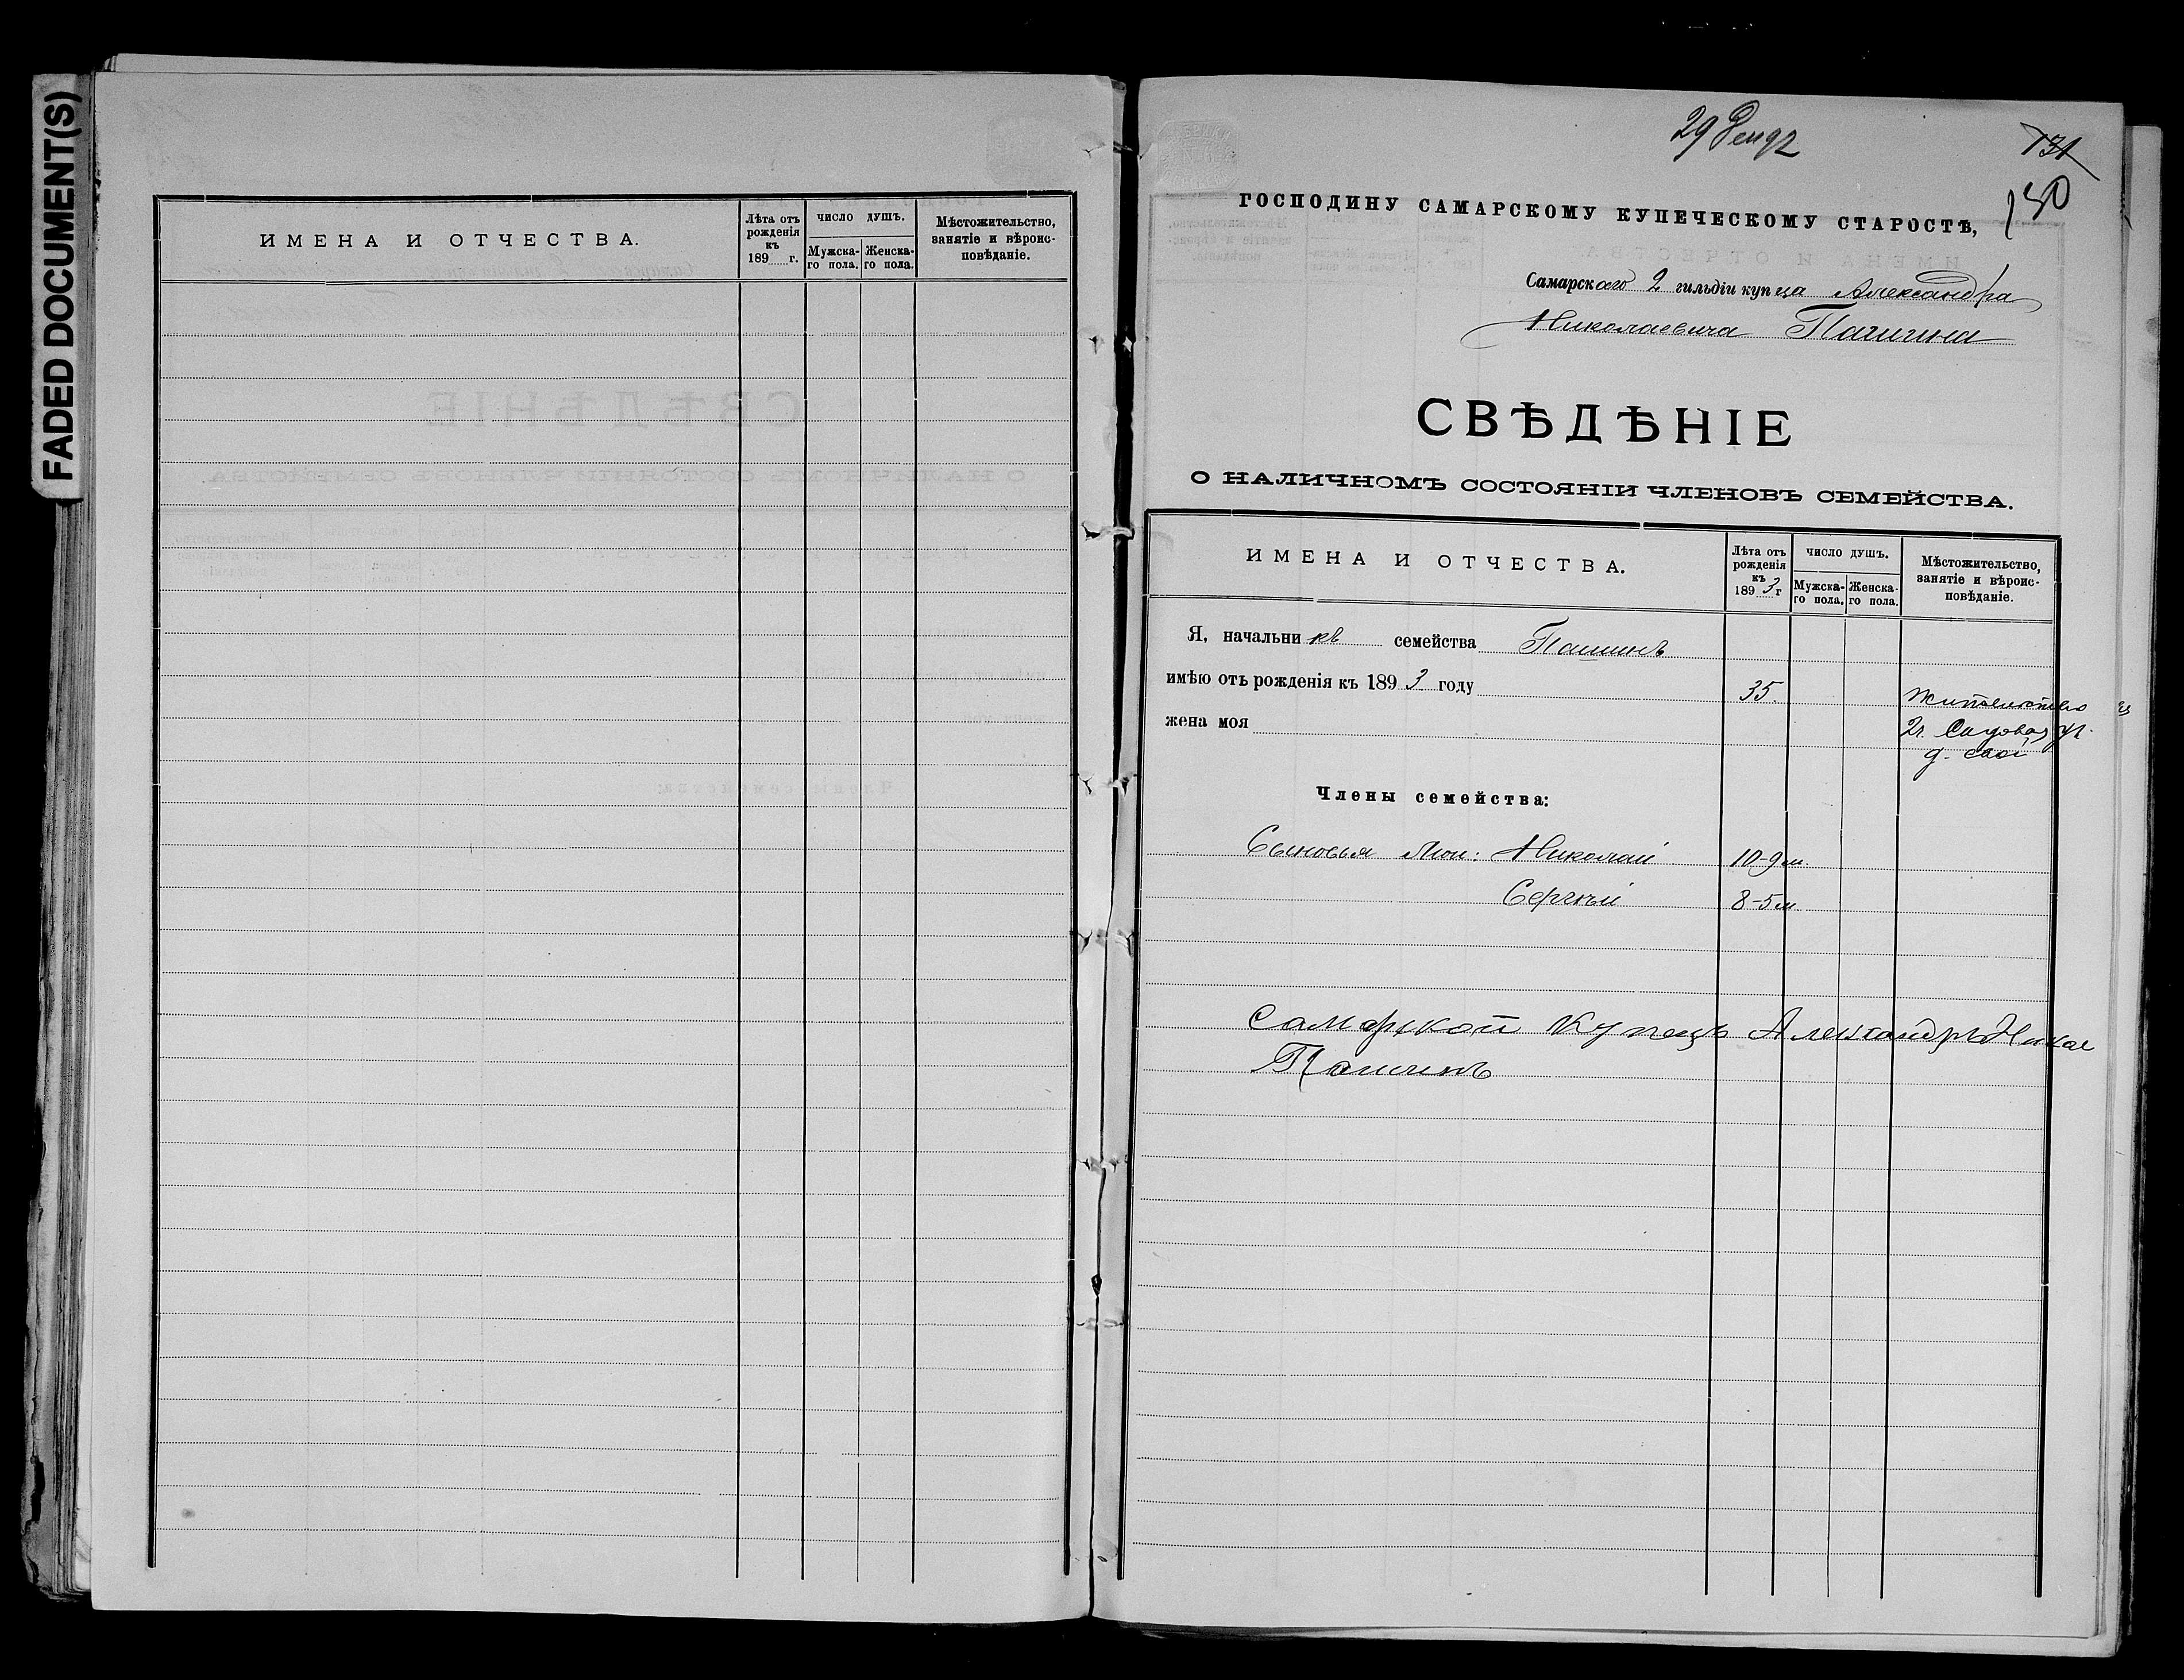 FADED DOCUMENT(S)
ИМЕНА И ОТЧЕСТВА.
Лѣта отъ рожденія къ 189 г.
ЧИСЛО ДУШЪ.
Мужска-го пола.
Женска-го пола.
Мѣстожительство, занятіе и вѣроис-повѣданіе.
29
131
130
ГОСПОДИНУ САМАРСКОМУ КУПЕЧЕСКОМУ СТАРОСТѢ,
Самарскаго 2 гильдіи купца Александра
Николаевича Пашина
СВѢДѢНІЕ
О НАЛИЧНОМЪ СОСТОЯНІИ ЧЛЕНОВЪ СЕМЕЙСТВА.
ИМЕНА И ОТЧЕСТВА.
Лѣта отъ рожденія къ 1893 г
ЧИСЛО ДУШЪ.
Мужска-го пола.
Женска-го пола.
Мѣстожительство, занятіе и вѣроис-повѣданіе.
Я, начальникъ семейства Пашинъ
имѣю отъ рожденія къ 1893 году 35.
жена моя
Жительство
Садовая ул.
д. свой
Члены семейства:
Сыновья Мои: Николай 10-9 м.
Сергѣй 8-5 м
Самарской Купецъ Александръ Никол
Пашинъ